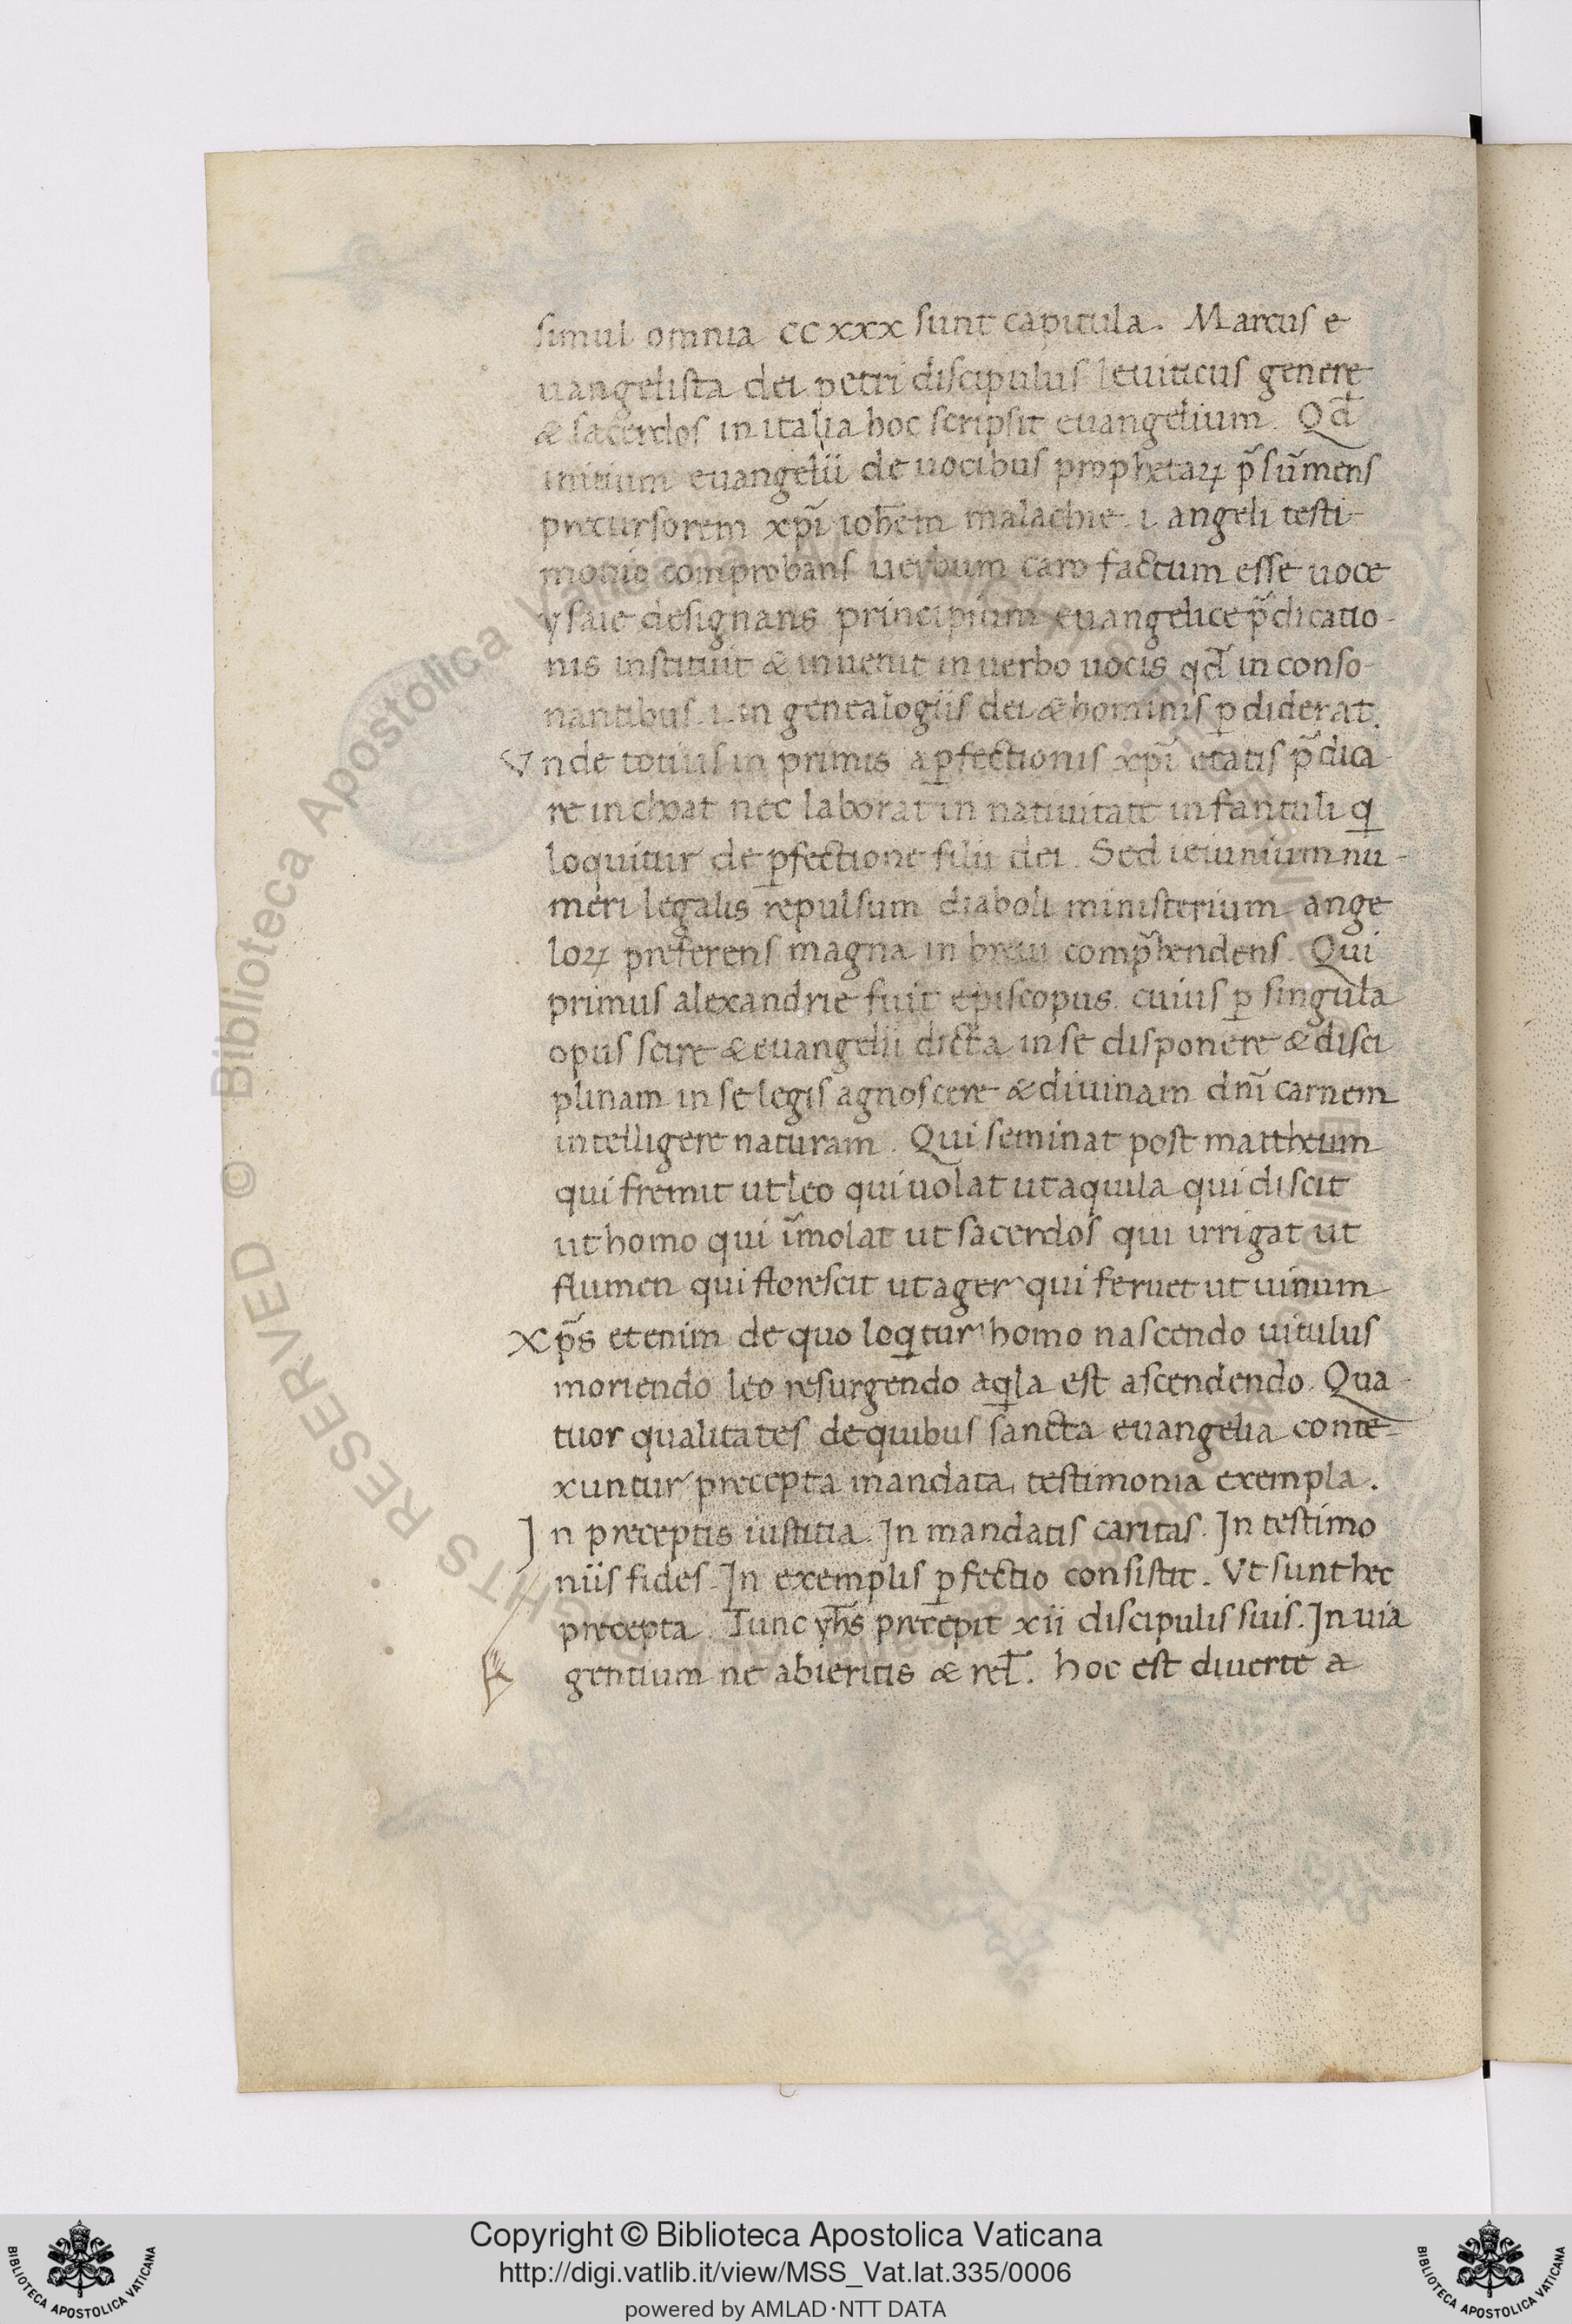 simul omnia ccxxx sunt capitula. Marcus e
uangelista dei petri discipulus leuiticus genere
& sacerdos in italia hoc scripsit euangelium. Qđ
initium euangelii de uocibus prophetaꝝ p̃sũmens
precursorem xp̃i ioh̃em malachie .i. angeli testi-
monio comprobans uerbum caro factum esse uoce
ysaie designans principium euangelice p̃dicatio-
nis instituit & inuenit in uerbo uocis qđ in conso-
nantibus .i. in genealogiis dei & hominis ꝑdiderat.
Vnde totius in primis a ꝑfectionis xp̃i etatis p̃dica-
re inchoat nec laborat in natiuitate infantuli q̲
loquitur de ꝑfectione filii dei. Sed ieiunium nu-
meri legalis repulsum diaboli ministerium ange
loꝝ preferens magna in breui comp̃hendens. Qui
primus alexandrie fuit episcopus. cuius ꝑ singula
opus scire & euangelii dicta in se disponere & disci
plinam in se legis agnoscere & diuinam dñi carnem
intelligere naturam. Qui seminat post mattheum
qui fremit ut leo qui uolat ut aquila qui discit
ut homo qui ĩmolat ut sacerdos qui irrigat ut
flumen qui florescit ut ager qui feruet ut uinum
Xp̃s etenim de quo loq̲tur homo nascendo uitulus
moriendo leo resurgendo aq̲la est ascendendo. Qua-
tuor qualitates de quibus sancta euangelia conte-
xuntur precepta mandata, testimonia exempla.
In preceptis iustitia. In mandatis caritas. In testimo
niis fides. In exemplis ꝑfectio consistit. Vt sunt hec
precepta. Tunc yh̃s precepit xii discipulis suis. In uia
gentium ne abieritis & rel̃. hoc est diuerte a
Biblioteca Apostolica Vaticana
© Biblioteca Apostolica Vaticana
ALL RIGHTS RESERVED
Copyright © Biblioteca Apostolica Vaticana
http://digi.vatlib.it/view/MSS_Vat.lat.335/0006
powered by AMLAD·NTT DATA
BIBLIOTECA APOSTOLICA VATICANA
BIBLIOTECA APOSTOLICA VATICANA